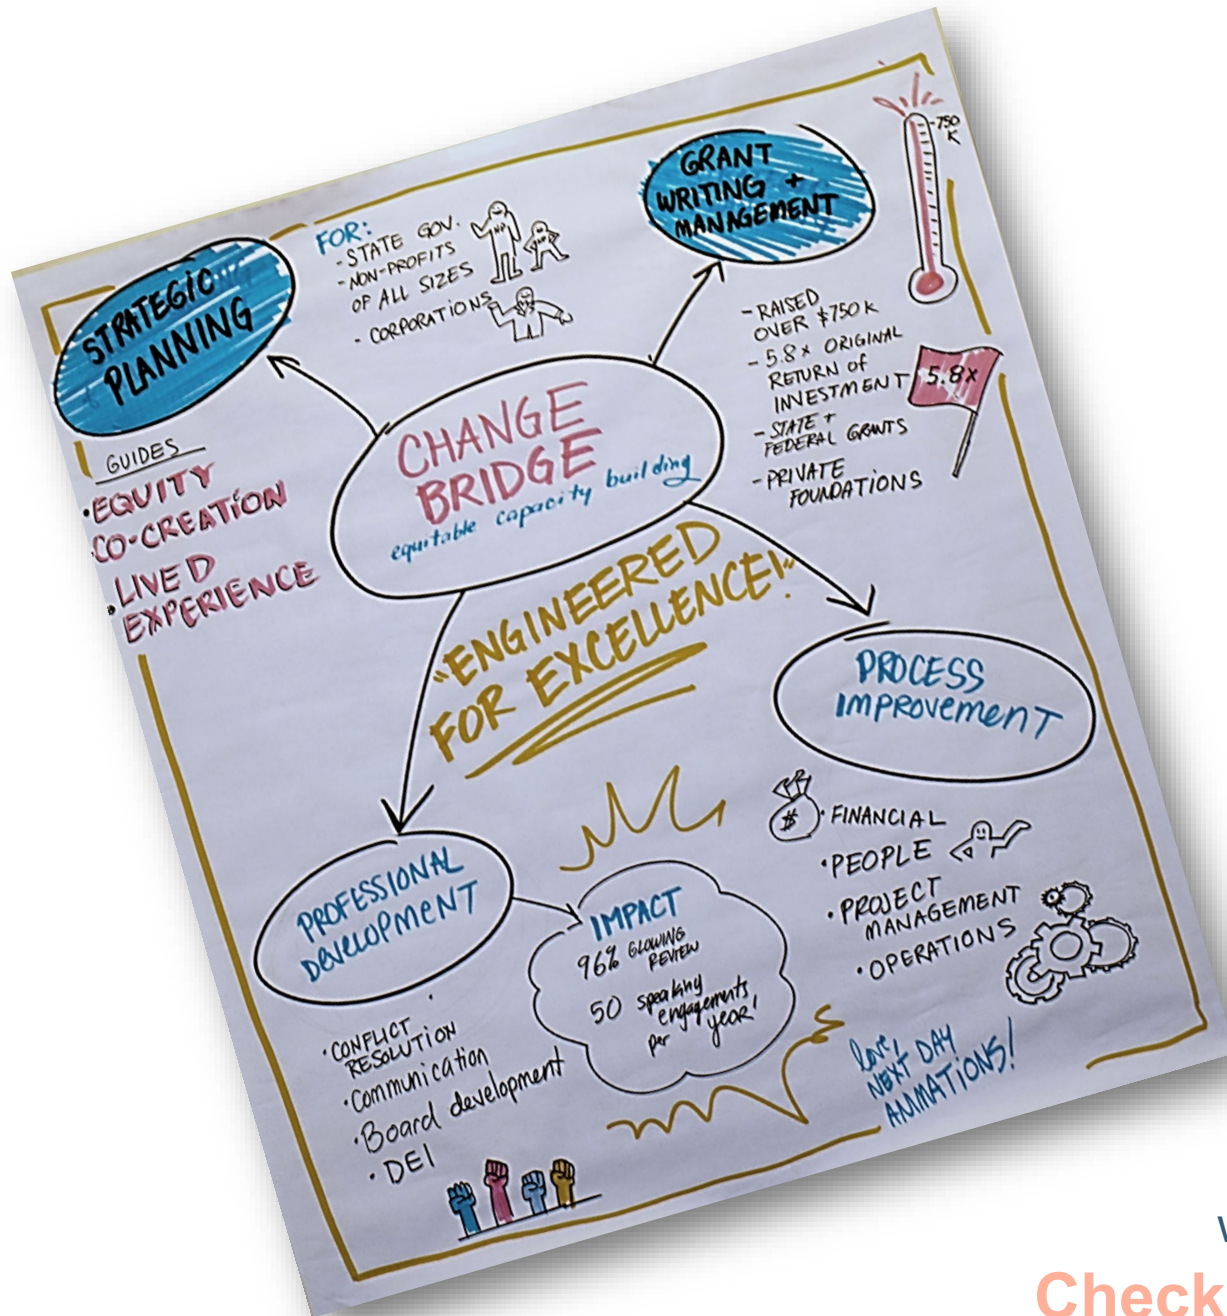 STRATEGIC
PLANNING
FOR:
- STATE GOV.
- NON-PROFITS
OF ALL SIZES
- CORPORATIONS
NP
NP
GRANT
WRITING +
MANAGEMENT
-750
K
- RAISED
OVER $750 K
- 5.8x ORIGINAL
RETURN OF
INVESTMENT
- STATE +
FEDERAL GRANTS
- PRIVATE
FOUNDATIONS
5.8x
CHANGE
BRIDGE
equitable capacity building
GUIDES
• EQUITY
• CO-CREATION
• LIVED
EXPERIENCE
"ENGINEERED
FOR EXCELLENCE!"
PROCESS
IMPROVEMENT
$
• FINANCIAL
• PEOPLE
• PROJECT
MANAGEMENT
• OPERATIONS
PROFESSIONAL
DEVELOPMENT
IMPACT
96% GLOWING
REVIEW
50 speaking
engagements
per year!
• CONFLICT
RESOLUTION
• Communication
• Board development
• DEI
love,
NEXT DAY
ANIMATIONS!
Check